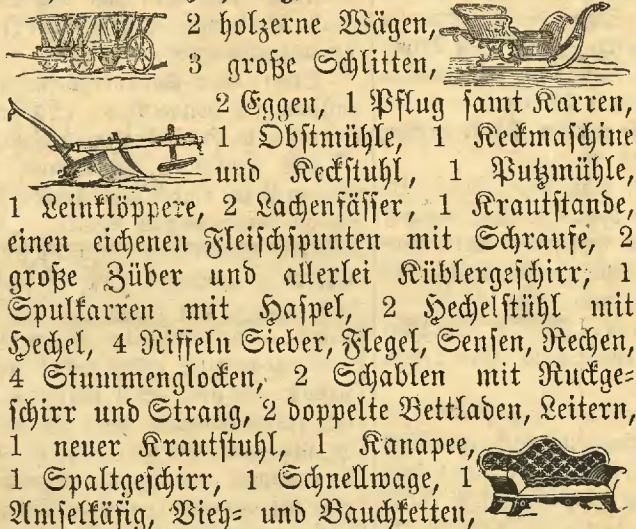 2 holzerne Wägen,
3 große Schlitten,
2 Eggen, 1 Pflug samt Karren,
1 Obstmühle, 1 Keckmaschine
und Keckstuhl, 1 Putzmühle,
1 Leinklöppere, 2 Lachenfässer, 1 Krautstande,
einen eichenen Fleischspunten mit Schraufe, 2
große Züber und allerlei Küblergeschirr, 1
Spulkarren mit Haspel, 2 Hechelstühl mit
Hechel, 4 Riffeln Sieber, Flegel, Sensen, Rechen,
4 Stummenglocken, 2 Schablen mit Ruckge=
schirr und Strang, 2 doppelte Bettladen, Leitern,
1 neuer Krautstuhl, 1 Kanapee,
1 Spaltgeschirr, 1 Schnellwage, 1
Amselkäfig, Vieh= und Bauchketten,